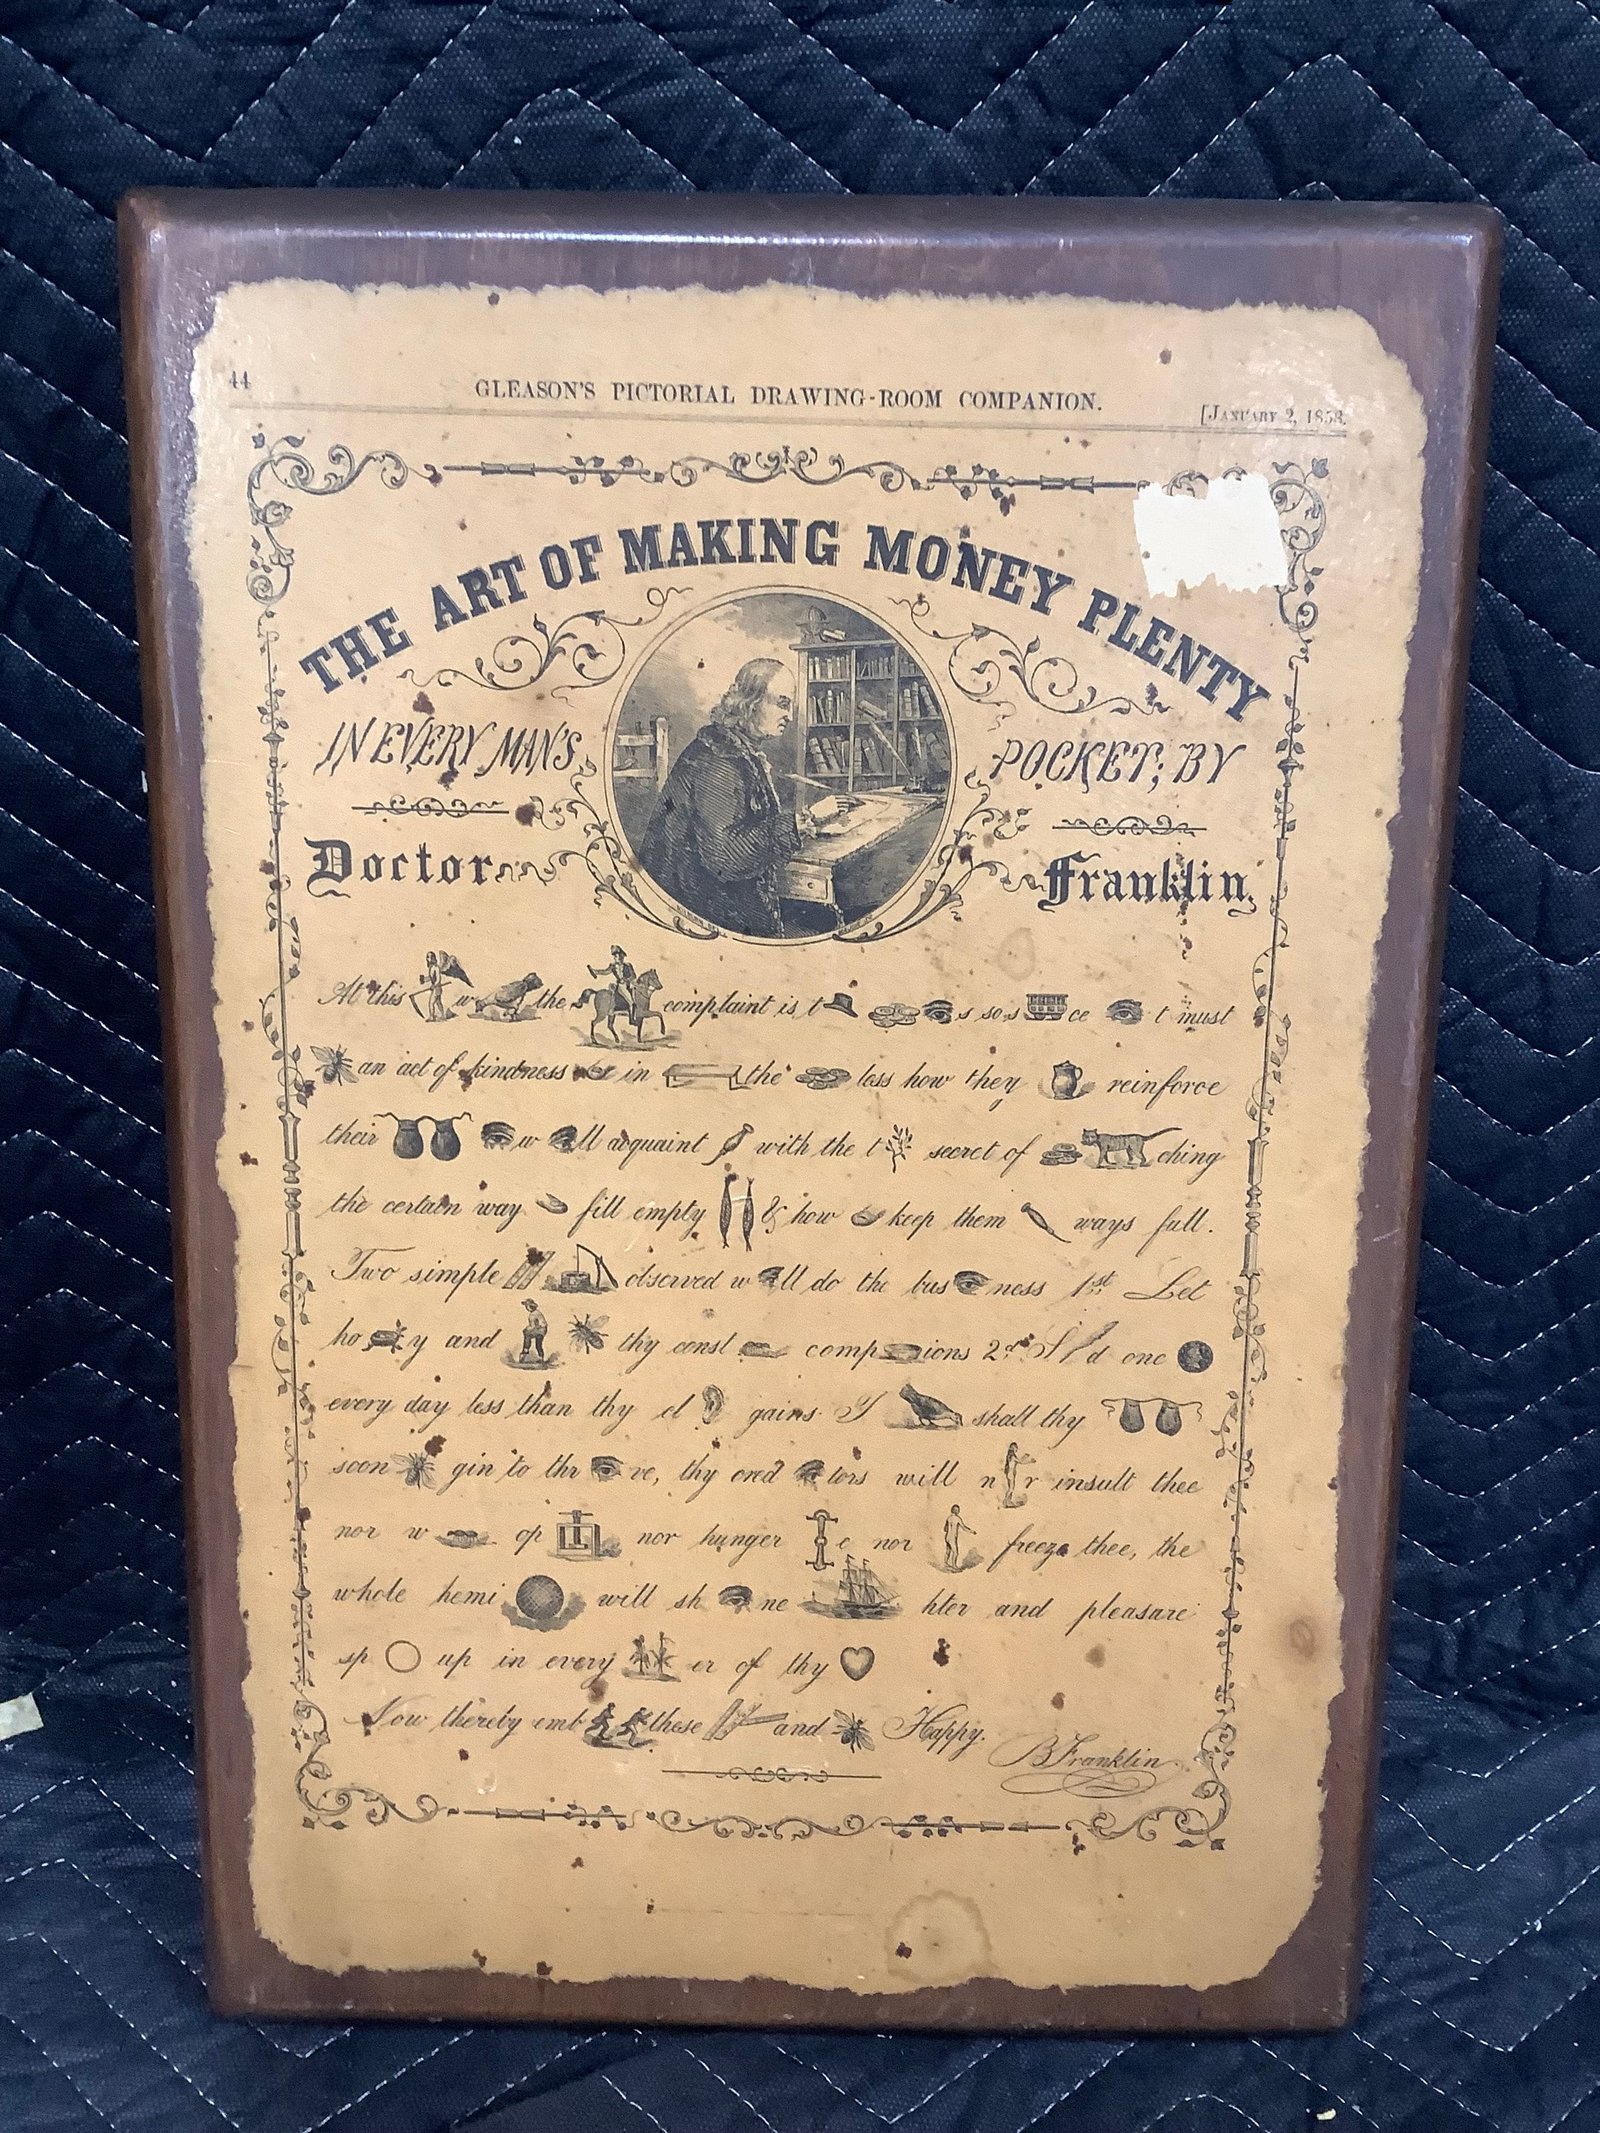 44
GLEASON'S PICTORIAL DRAWING-ROOM COMPANION.
[JANUARY 2, 1858.
THE ART OF MAKING MONEY PLENTY
IN EVERY MAN'S
POCKET; BY
Doctor
Franklin.
At this w the complaint is t s so s ce t must
an act of kindness in the less how they reinforce
their w ll acquaint with the t secret of ching
the certain way fill empty & how keep them ways full.
Two simple observed w ll do the bus ness 1st Let
ho y and thy const comp ions 2d S d one
every day less than thy cl gains I shall thy
soon gin to thr ve, thy cred tors will n r insult thee
nor w op nor hunger e nor freeze thee, the
whole hemi will sh ne hter and pleasure
sp up in every er of thy
Now thereby emb these and Happy.
B Franklin